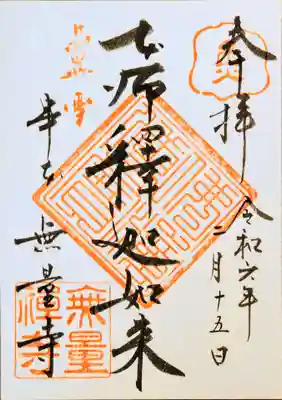 奉拝
令和六年
二月十五日
本師釋迦如来
串本
無量寺
無量
禅寺